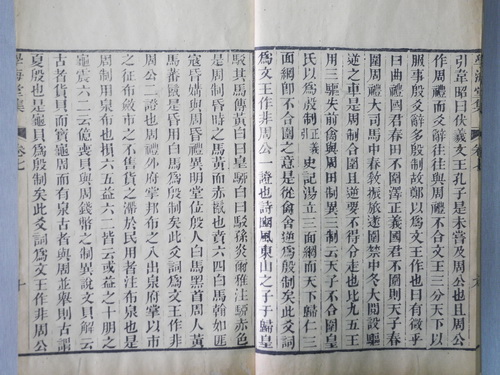 引韋昭曰伏羲文王孔子是未嘗及周公也且周公
作周禮而爻辭往往與周禮不合文王三分天下以
服事殷爻辭多殷制故鄭以爲文王作也曰有徵乎
曰曲禮國君春田不圍澤正義國君不圍則天子春
圍周禮大司馬中春敎振旅遂圍禁中冬大閱設驅
逆之車是周制合圍且逆要不得令走也比九五王
用三驅失前禽與周田制異制云天子不合圍
氏以爲殷制正義史記湯立三面網而天下歸仁三
面網卽不合圍之意是從禽舍逆爲殷制矣此爻詞
爲文王作非周公一證也詩國風東山之子于歸皇
駁其馬傳黃白曰皇駵白曰駁孫炎爾雅注駵赤色
也周制昏禮時之馬黃而赤賁六四白馬翰如匪
寇昏媾與周昏禮異明堂位殷人白馬黑首周人黃
馬蕃鬣是昏用白馬爲殷制矣此爻詞爲文王作非
周公二證也周禮外府掌邦布之入出泉府掌以市
之征布斂市之不售貨之滯於民用者注布泉也是
周制用泉布也損六五益六二皆云或益之十朋之
龜震六二云億喪貝與周錢幣之制異說文貝解云
古者貨貝而寶龜周而有泉古者與周並舉則古謂
夏殷也是龜貝爲殷制矣此爻詞爲文王作非周公
學海堂集 卷七 十